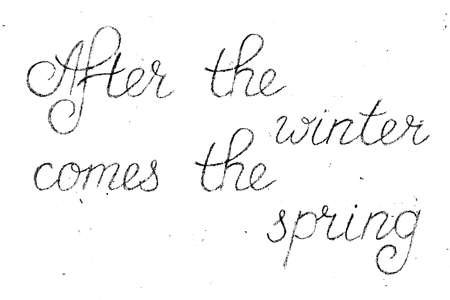 After the
winter
comes the
spring